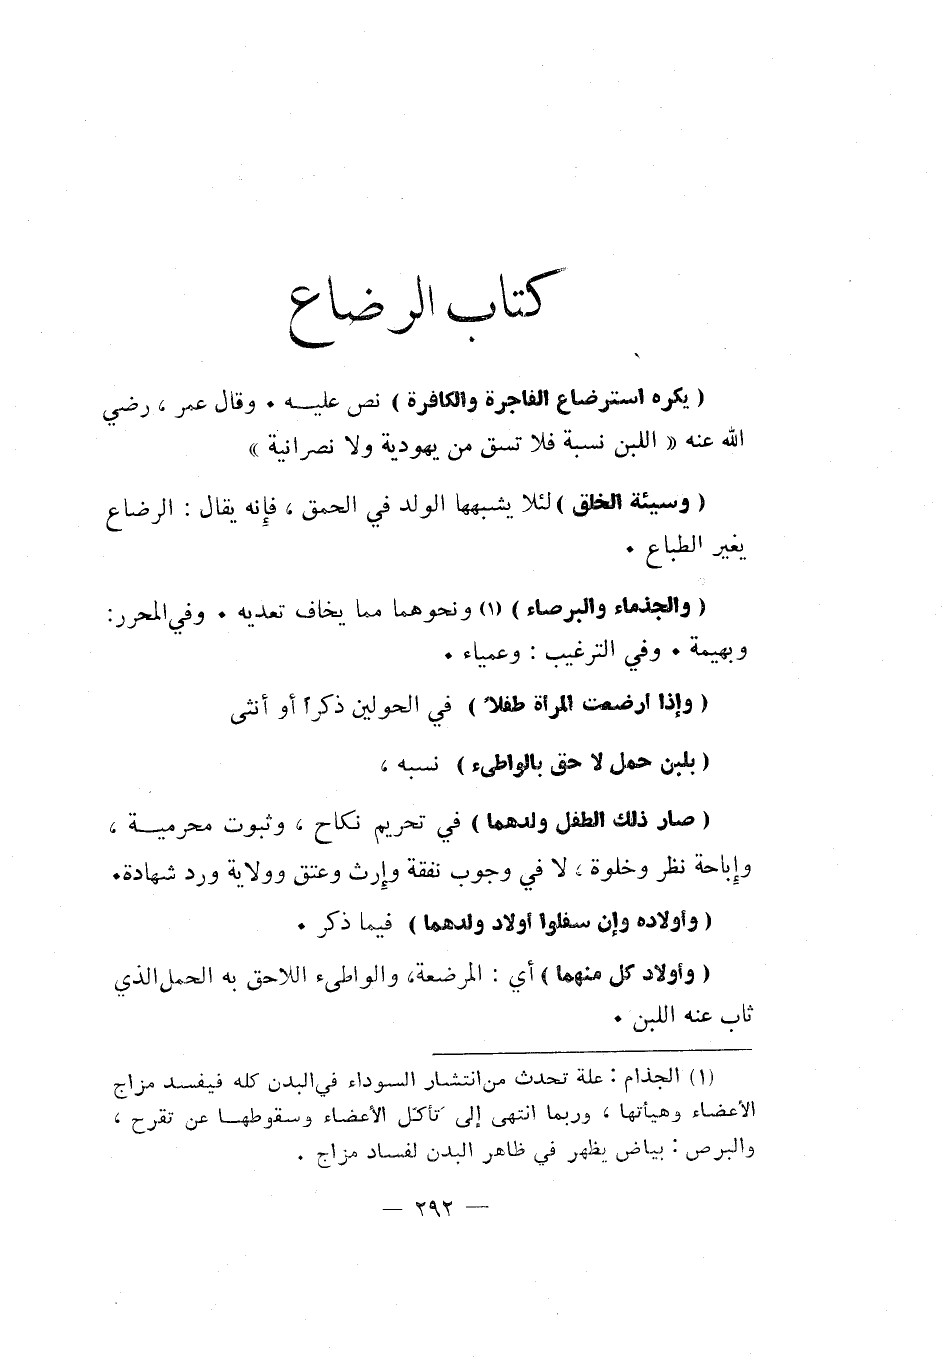 كتاب الرضاع
( يكره استرضاع الفاجرة والكافرة ) نص عليــه ٠ وقال عمر ، رضي
الله عنه « اللبن نسبة فلا تسق من يهودية ولا نصرانية »
( وسيئة الخلق ) لئلا يشبهها الولد في الحمق ، فإنه يقال : الرضاع
يغير الطباع ٠
( والجذماء والبرصاء ) (١) ونحوهما مما يخاف تعديه ٠ وفي المحرر :
وبهيمة ٠ وفي الترغيب : وعمياء ٠
( وإذا أرضعت المرأة طفلاً ) في الحولين ذكراً أو أنثى
( بلبن حمل لا حق بالواطىء ) نسبه ،
( صار ذلك الطفل ولدهما ) في تحريم نكاح ، وثبوت محرميــة ،
وإباحة نظر وخلوة ، لا في وجوب نفقة وإرث وعتق وولاية ورد شهادة٠
( وأولاده وإن سفلوا أولاد ولدهما ) فيما ذكر ٠
( وأولاد كل منهما ) أي : المرضعة، والواطىء اللاحق به الحمل الذي
ثاب عنه اللبن ٠
(١) الجذام : علة تحدث من انتشار السوداء في البدن كله فيفسد مزاج
الأعضاء وهيأتها ، وربما انتهى إلى تأكل الأعضاء وسقوطهــا عن تقرح ،
والبرص : بياض يظهر في ظاهر البدن لفساد مزاج .
— ٢٩٢ —